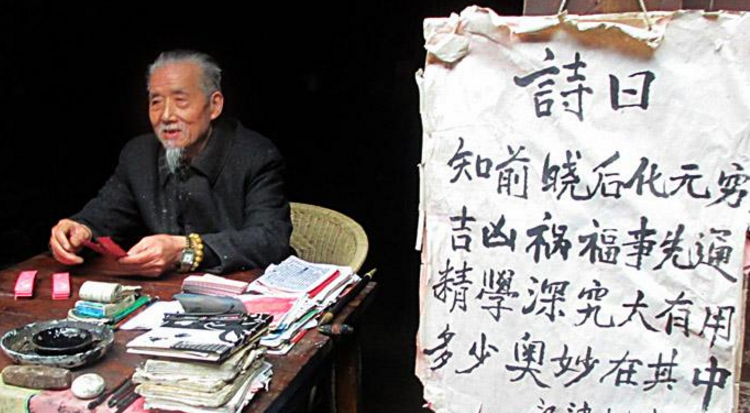 詩曰
知前晓后化元穷
吉凶祸福事先通
精學深究太有用
多少奥妙在其中